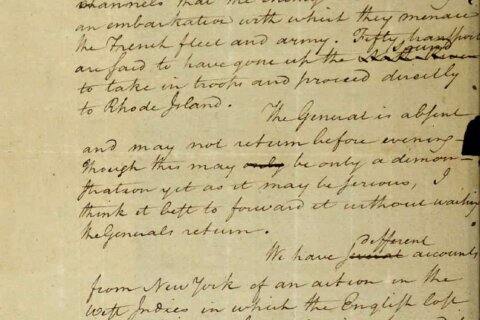 channels that the enemy
an embarkation with which they menace
the French fleet and army. Fifty transports
are said to have gone up the Sound
to take in troops and proceed directly
to Rhode Island.
The General is absent
and may not return before evening-
Though this may only be only a demon-
stration yet as it may be serious, I
think it best to forward it without waiting
the Generals return.
different
We have several accounts
from New York of an action in the
West Indies in which the English lost